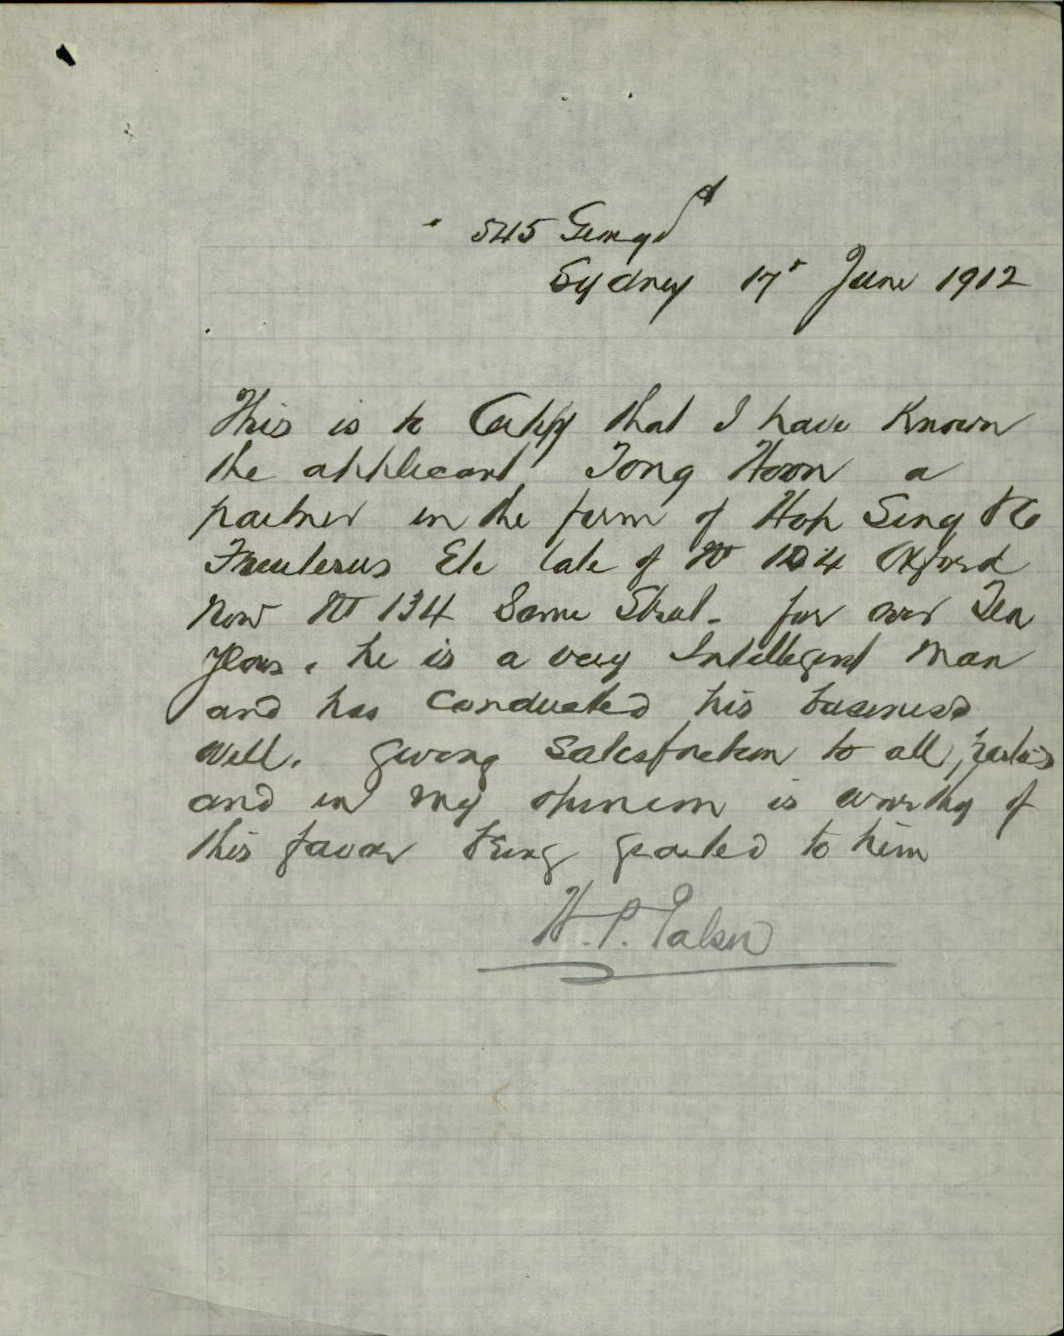 545 George St
Sydney 17th June 1912
This is to Certify that I have Known
the applicant Tong Hoon a
partner in the firm of Hop Sing & Co
Fruiterers Etc late of No 124 Oxford
now No 134 Same Street. for over Ten
years. he is a very Intelligent man
and has conducted his business
well. giving satisfaction to all parties
and in my opinion is worthy of
this favor being granted to him
H. P.